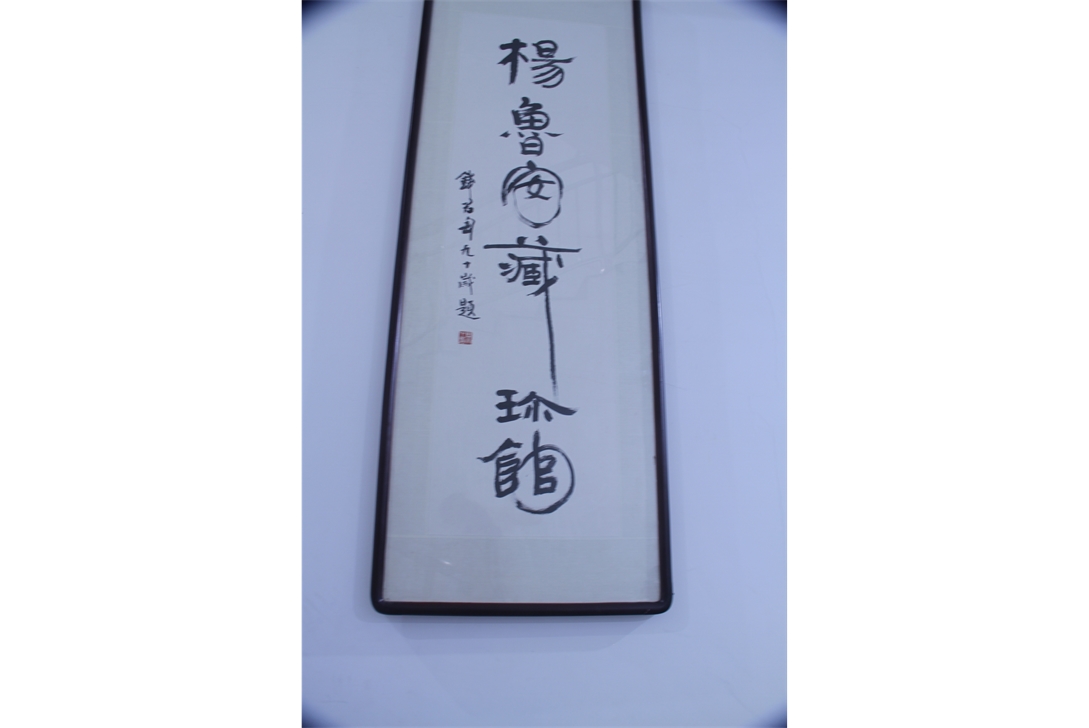 楊魯安藏珍館
錢君匋九十歲題